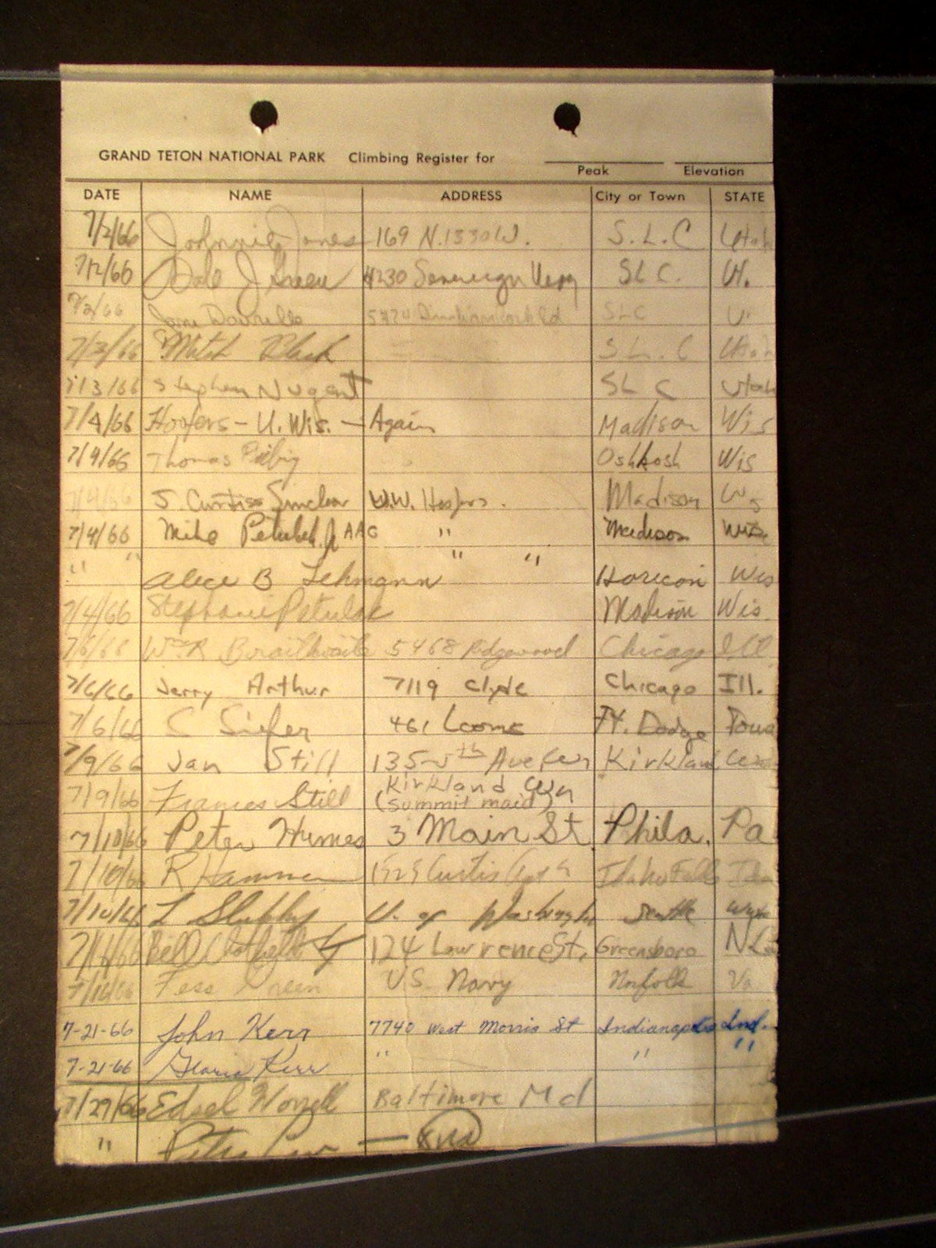 GRAND TETON NATIONAL PARK Climbing Register for
Peak Elevation
DATE NAME ADDRESS City or Town STATE
7/2/66 Johnnie Jones 169 N. 1330 W. S.L.C Utah
7/2/66 Dale J Green 4230 SLC. U.
7/3/66 SLC U
7/3/66 Mitch Black S.L.C Utah
7/3/66 Stephen Nugent SLC Utah
7/4/66 Hoofers - U. Wis. - Again Madison Wis
7/4/66 Thomas Oshkosh Wis
7/4/66 J. Curtiss Sinclear Madison Wis
7/4/66 Mike AAC " Madison Wis
" " Alice B Lehmann " " Horicon Wis
7/4/66 Stephanie Madison Wis.
7/6/66 Wm R Braithwaite 5468 Ridgewood Chicago Ill.
7/6/66 Jerry Arthur 7119 Clyde Chicago Ill.
7/6/66 C Siefer 461 Loomis Ft. Dodge Iowa
7/9/66 Jan Still 135-5th Ave Kirkland
7/9/66 Frances Still Kirkland Wn
(Summit maid)
7/10/66 Peter Humes 3 Main St. Phila. Pa
7/10/66 R Curtis Idaho Falls Ida
7/10/66 L U. of Washington Seattle
Bill 124 Lawrence St, Greensboro N.C.
7/16/66 Fess Green U.S. Navy Norfolk Va
7-21-66 John Kerr 7740 West Morris St Indianapolis Ind.
7-21-66 Kerr " " "
7/29/66 Edsel Baltimore Md
" Pete